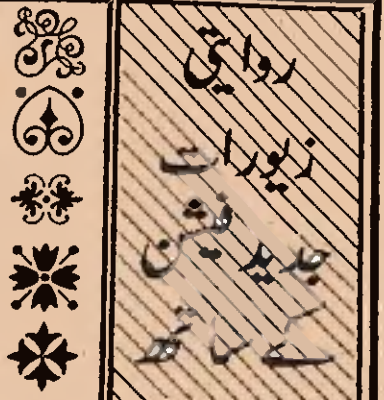 روایتی
زیورات
جدید فیشن
کے ساتھ